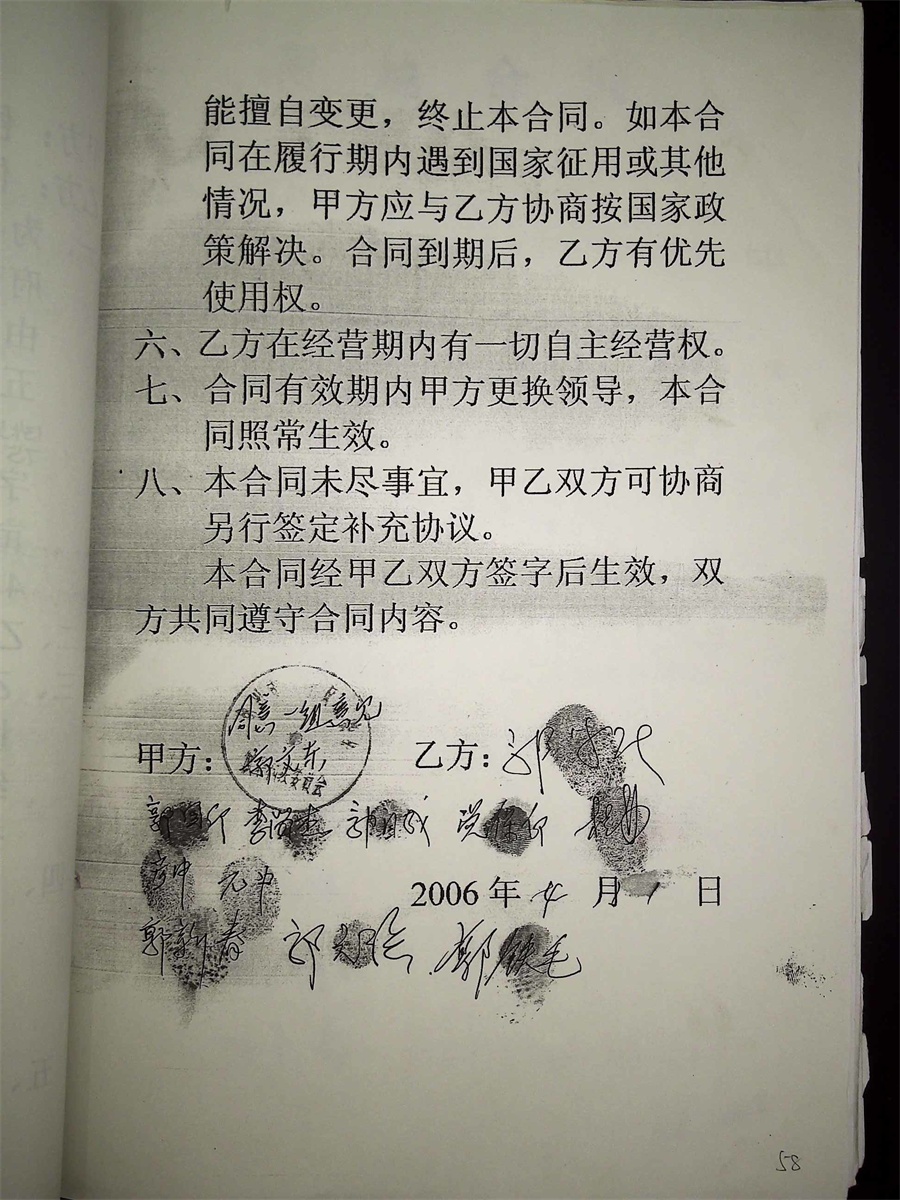 能擅自变更，终止本合同。如本合
同在履行期内遇到国家征用或其他
情况，甲方应与乙方协商按国家政
策解决。合同到期后，乙方有优先
使用权。
六、乙方在经营期内有一切自主经营权。
七、合同有效期内甲方更换领导，本合
同照常生效。
八、本合同未尽事宜，甲乙双方可协商
另行签定补充协议。
本合同经甲乙双方签字后生效，双
方共同遵守合同内容。
同意一组意见
甲方： 乙方：
2006 年 4 月 1 日
郭新春 郭铁毛
58